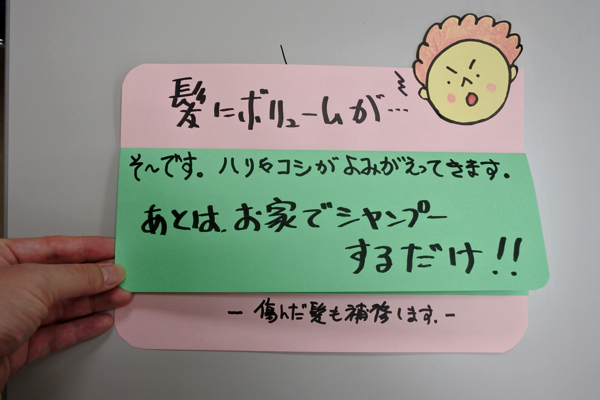 髪にボリュームが…
そ〜です。ハリやコシがよみがえってきます。
あとは、お家でシャンプー
するだけ!!
－傷んだ髪も補修します.－